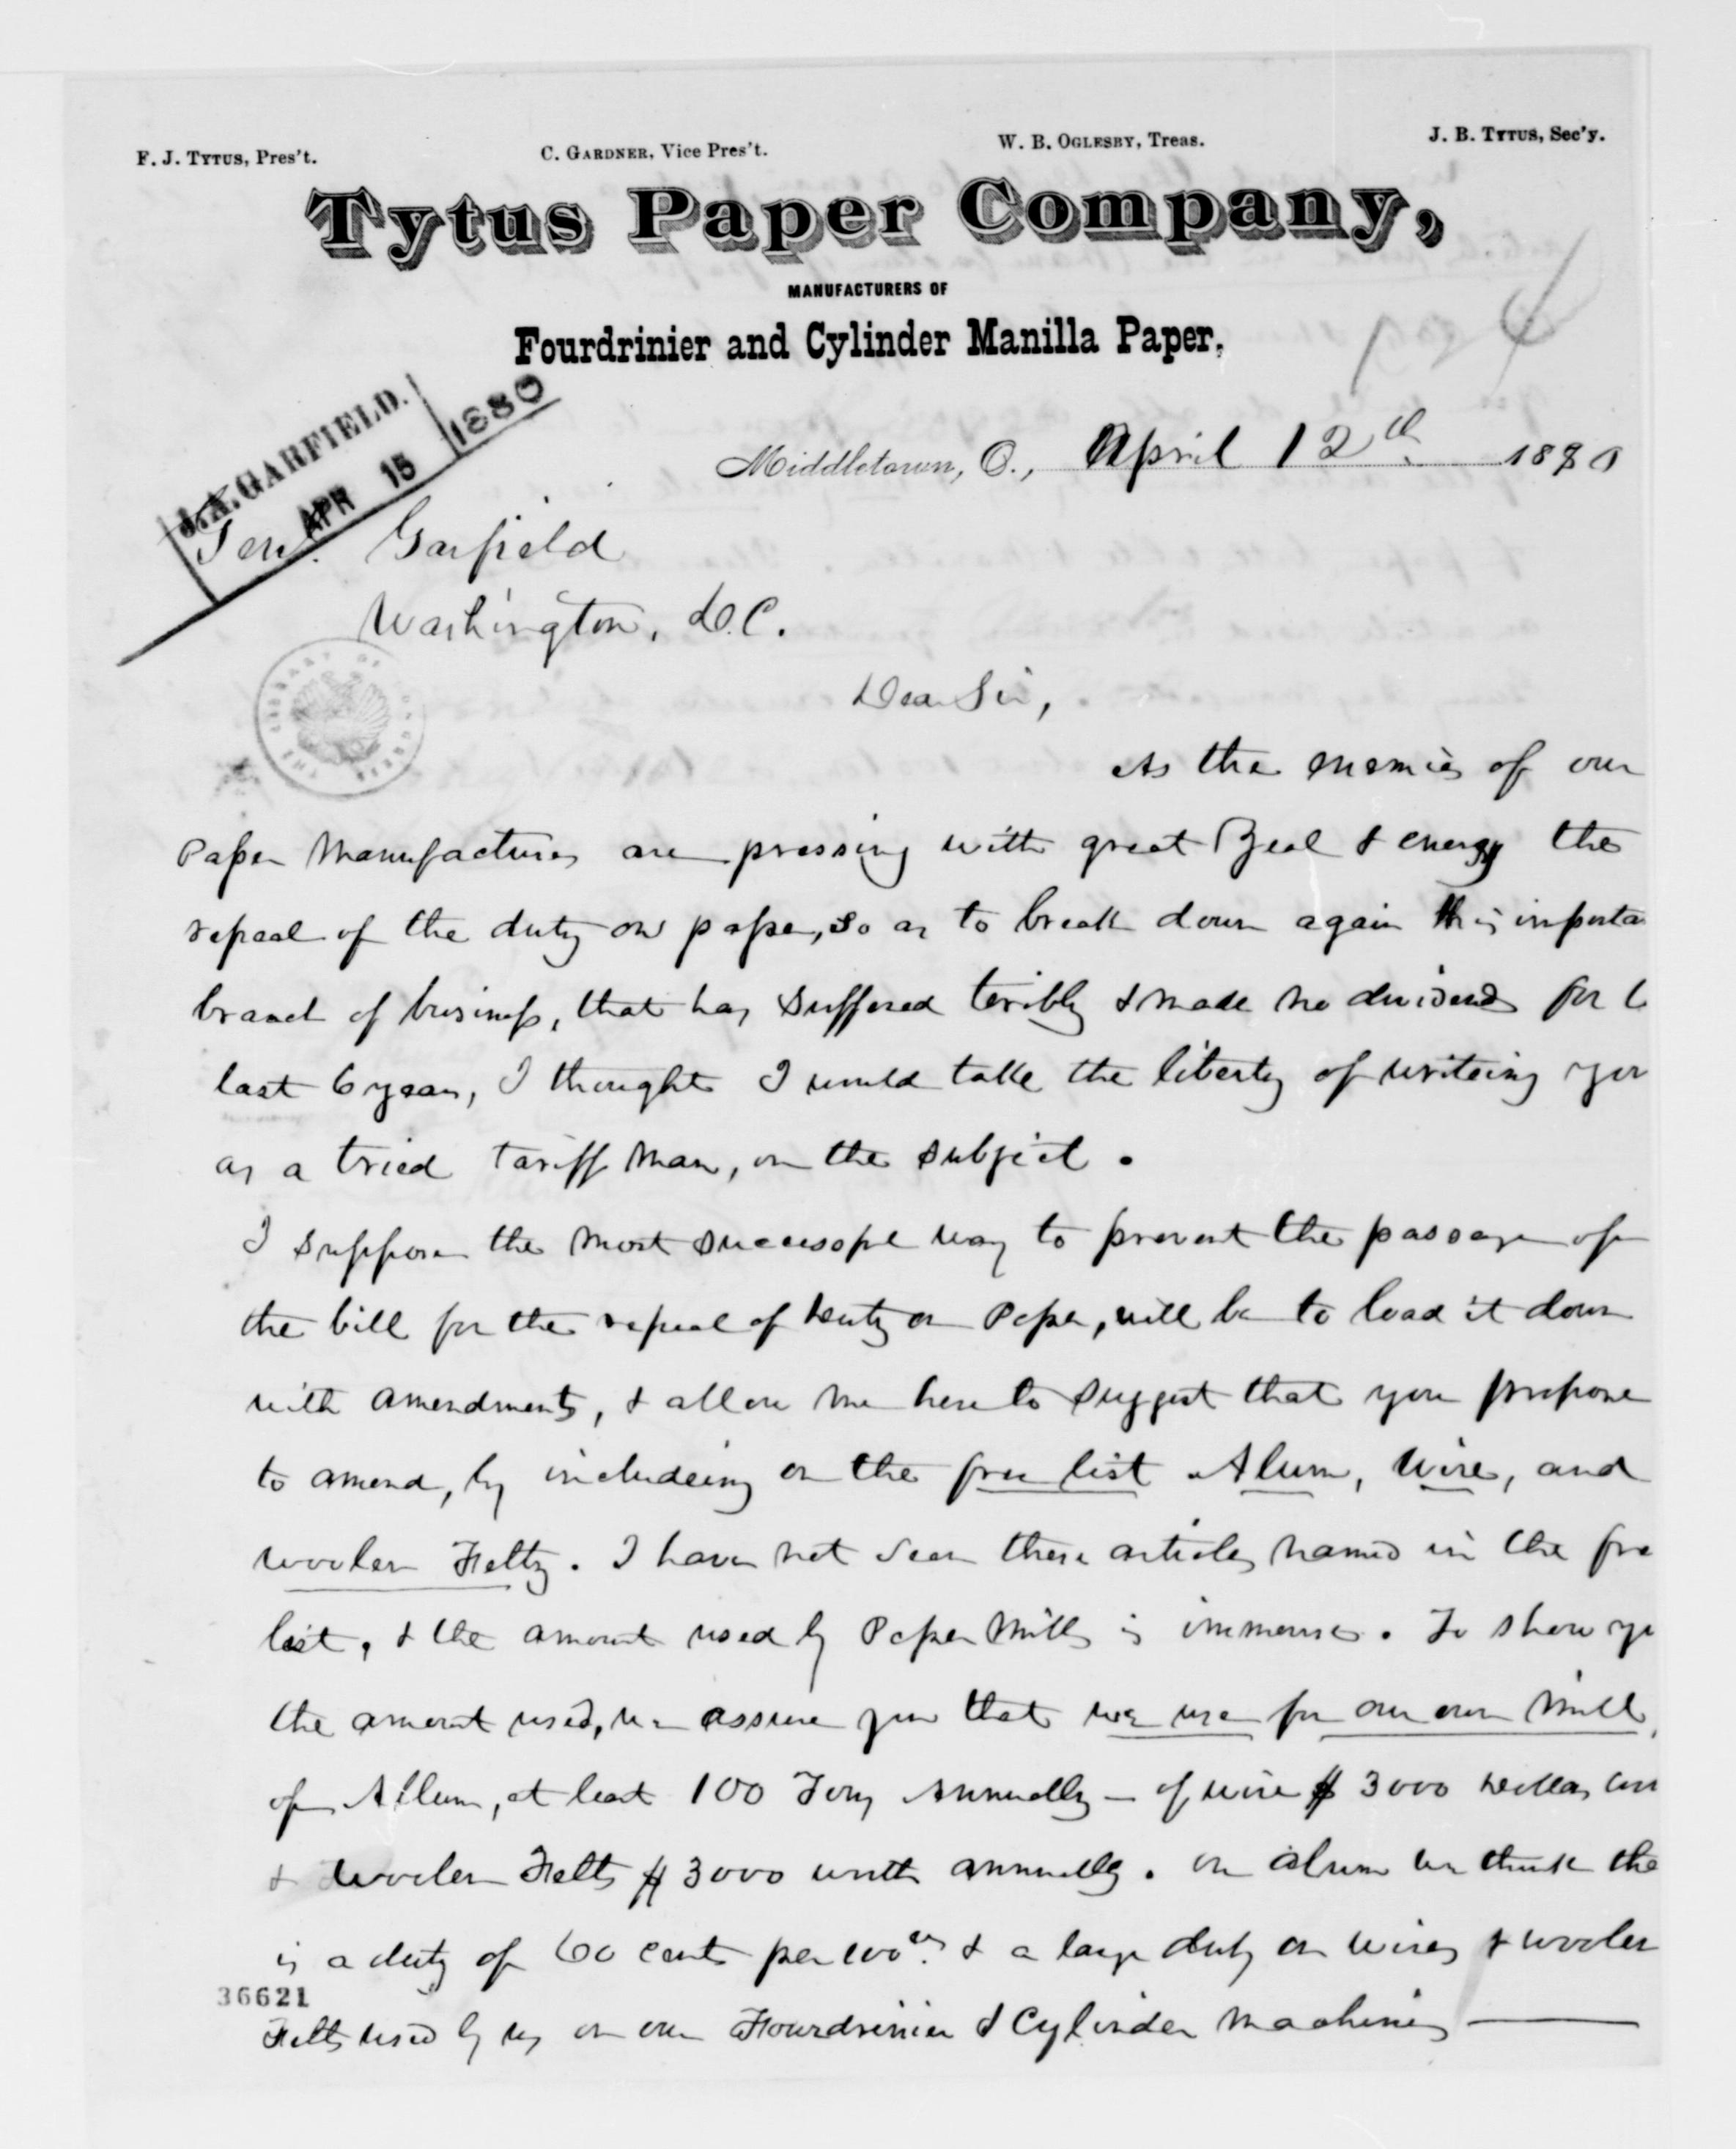 F. J. Tytus, Pres't. C. Gardner, Vice Pres't. W. B. Oglesby, Treas. J. B. Tytus, Sec'y.
Tytus Paper Company,
MANUFACTURERS OF
Fourdrinier and Cylinder Manilla Paper.
J. A. GARFIELD.
APR 15 1880
Middletown, O., April 12th 1880
Genl. Garfield
Washington, D.C.
Dear Sir,
THE LIBRARY OF CONGRESS
As the enemies of our
Paper Manufactures are pressing with great Zeal & energy the
repeal of the duty on paper, so as to break down again this importa
branch of business, that has suffered teribly & made no dividends for t
last 6 years, I thought I would take the liberty of writeing you
as a tried tariff man, on the subject.
I suppose the most successful way to prevent the passage of
the bill for the repeal of Duty on Paper, will be to load it down
with amendments, & allow me here to suggest that you propose
to amend, by includeing on the free list Alum, Wire, and
woolen Felts. I have not seen these articles named in the fre
list, & the amount used by Paper Mills is immense. To show yo
the amount used, we assure you that we use for our own Mill,
of Allum, at least 100 Tons Annually — of wire $3000 Dollars
& Woolen Felts $3000 worth annually. on alum we think the
is a duty of 60 cents per 100 & a large duty on wires & woolen
Felts used by us on our Fourdrinier & Cylinder Machines —
36621